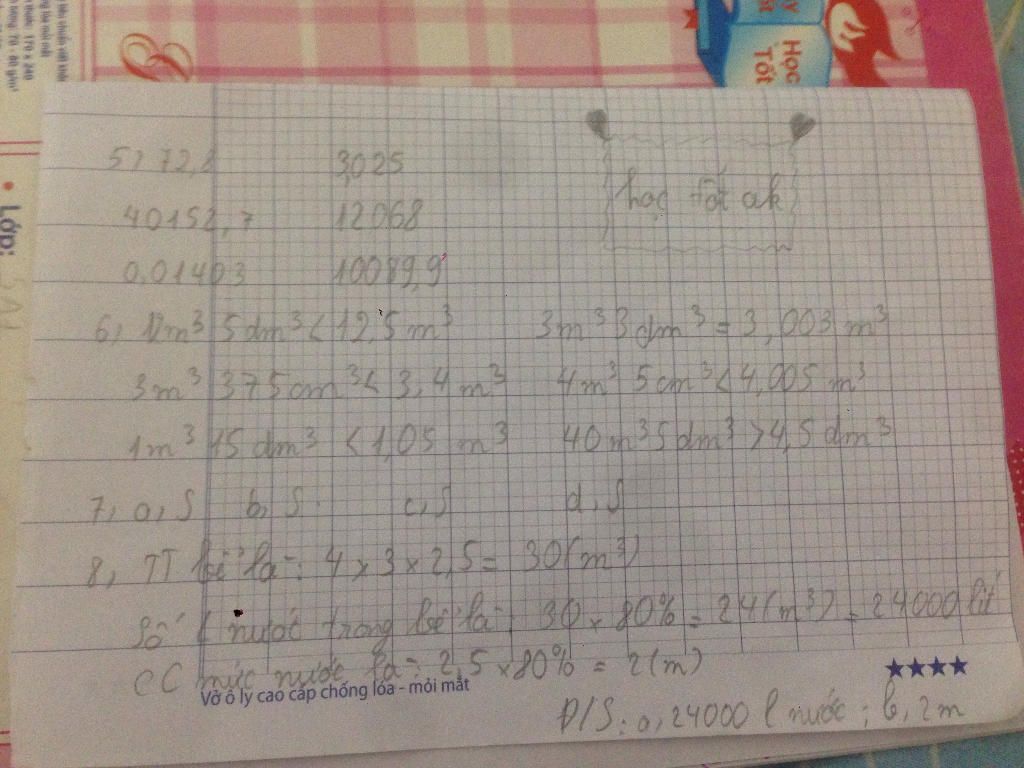 Học
Tốt
Lớp:
5, 72,1 3,025
học tốt ak
40152,7 12068
0,01403 10089,9
6, 12m³ 5dm³ < 12,5 m³ 3m³ 3dm³ = 3,003 m³
3m³ 375cm³ < 3,4 m³ 4m³ 5cm³ < 4,005 m³
1m³ 15 dm³ < 1,05 m³ 40m³ 5dm³ > 4,5 dm³
7, a, S b, S c, S d, S
8, TT bể là: 4 x 3 x 2,5 = 30(m³)
Số l nước trong bể là: 30 x 80% = 24(m³) = 24000 lít
CC mức nước là: 2,5 x 80% = 2(m)
Vở ô ly cao cấp chống lóa - mỏi mắt
Đ/S: a, 24000 l nước; b, 2m